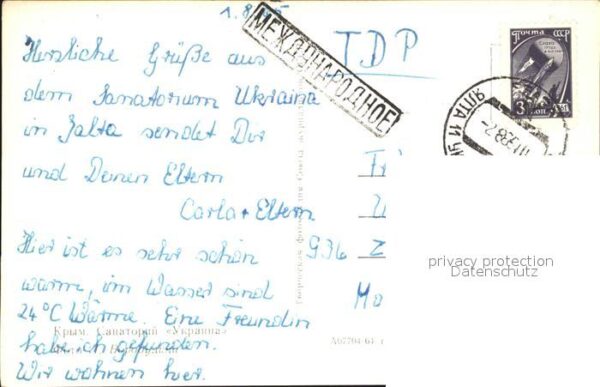 1.8.
МЕЖДУНАРОДНОЕ
TDP
ПОЧТА
Herzliche Grüße aus
dem Sanatorium Ukraina
in Jalta sendet Dir
und Deinen Eltern
Carla + Eltern
Hier ist es sehr schön
warm, im Wasser sind
24°C Wärme. Eine Freundin
habe ich gefunden.
Wir wohnen hier.
936
ЯЛТА
Крым. Санаторий «Украина»
А07704 64
privacy protection
Datenschutz